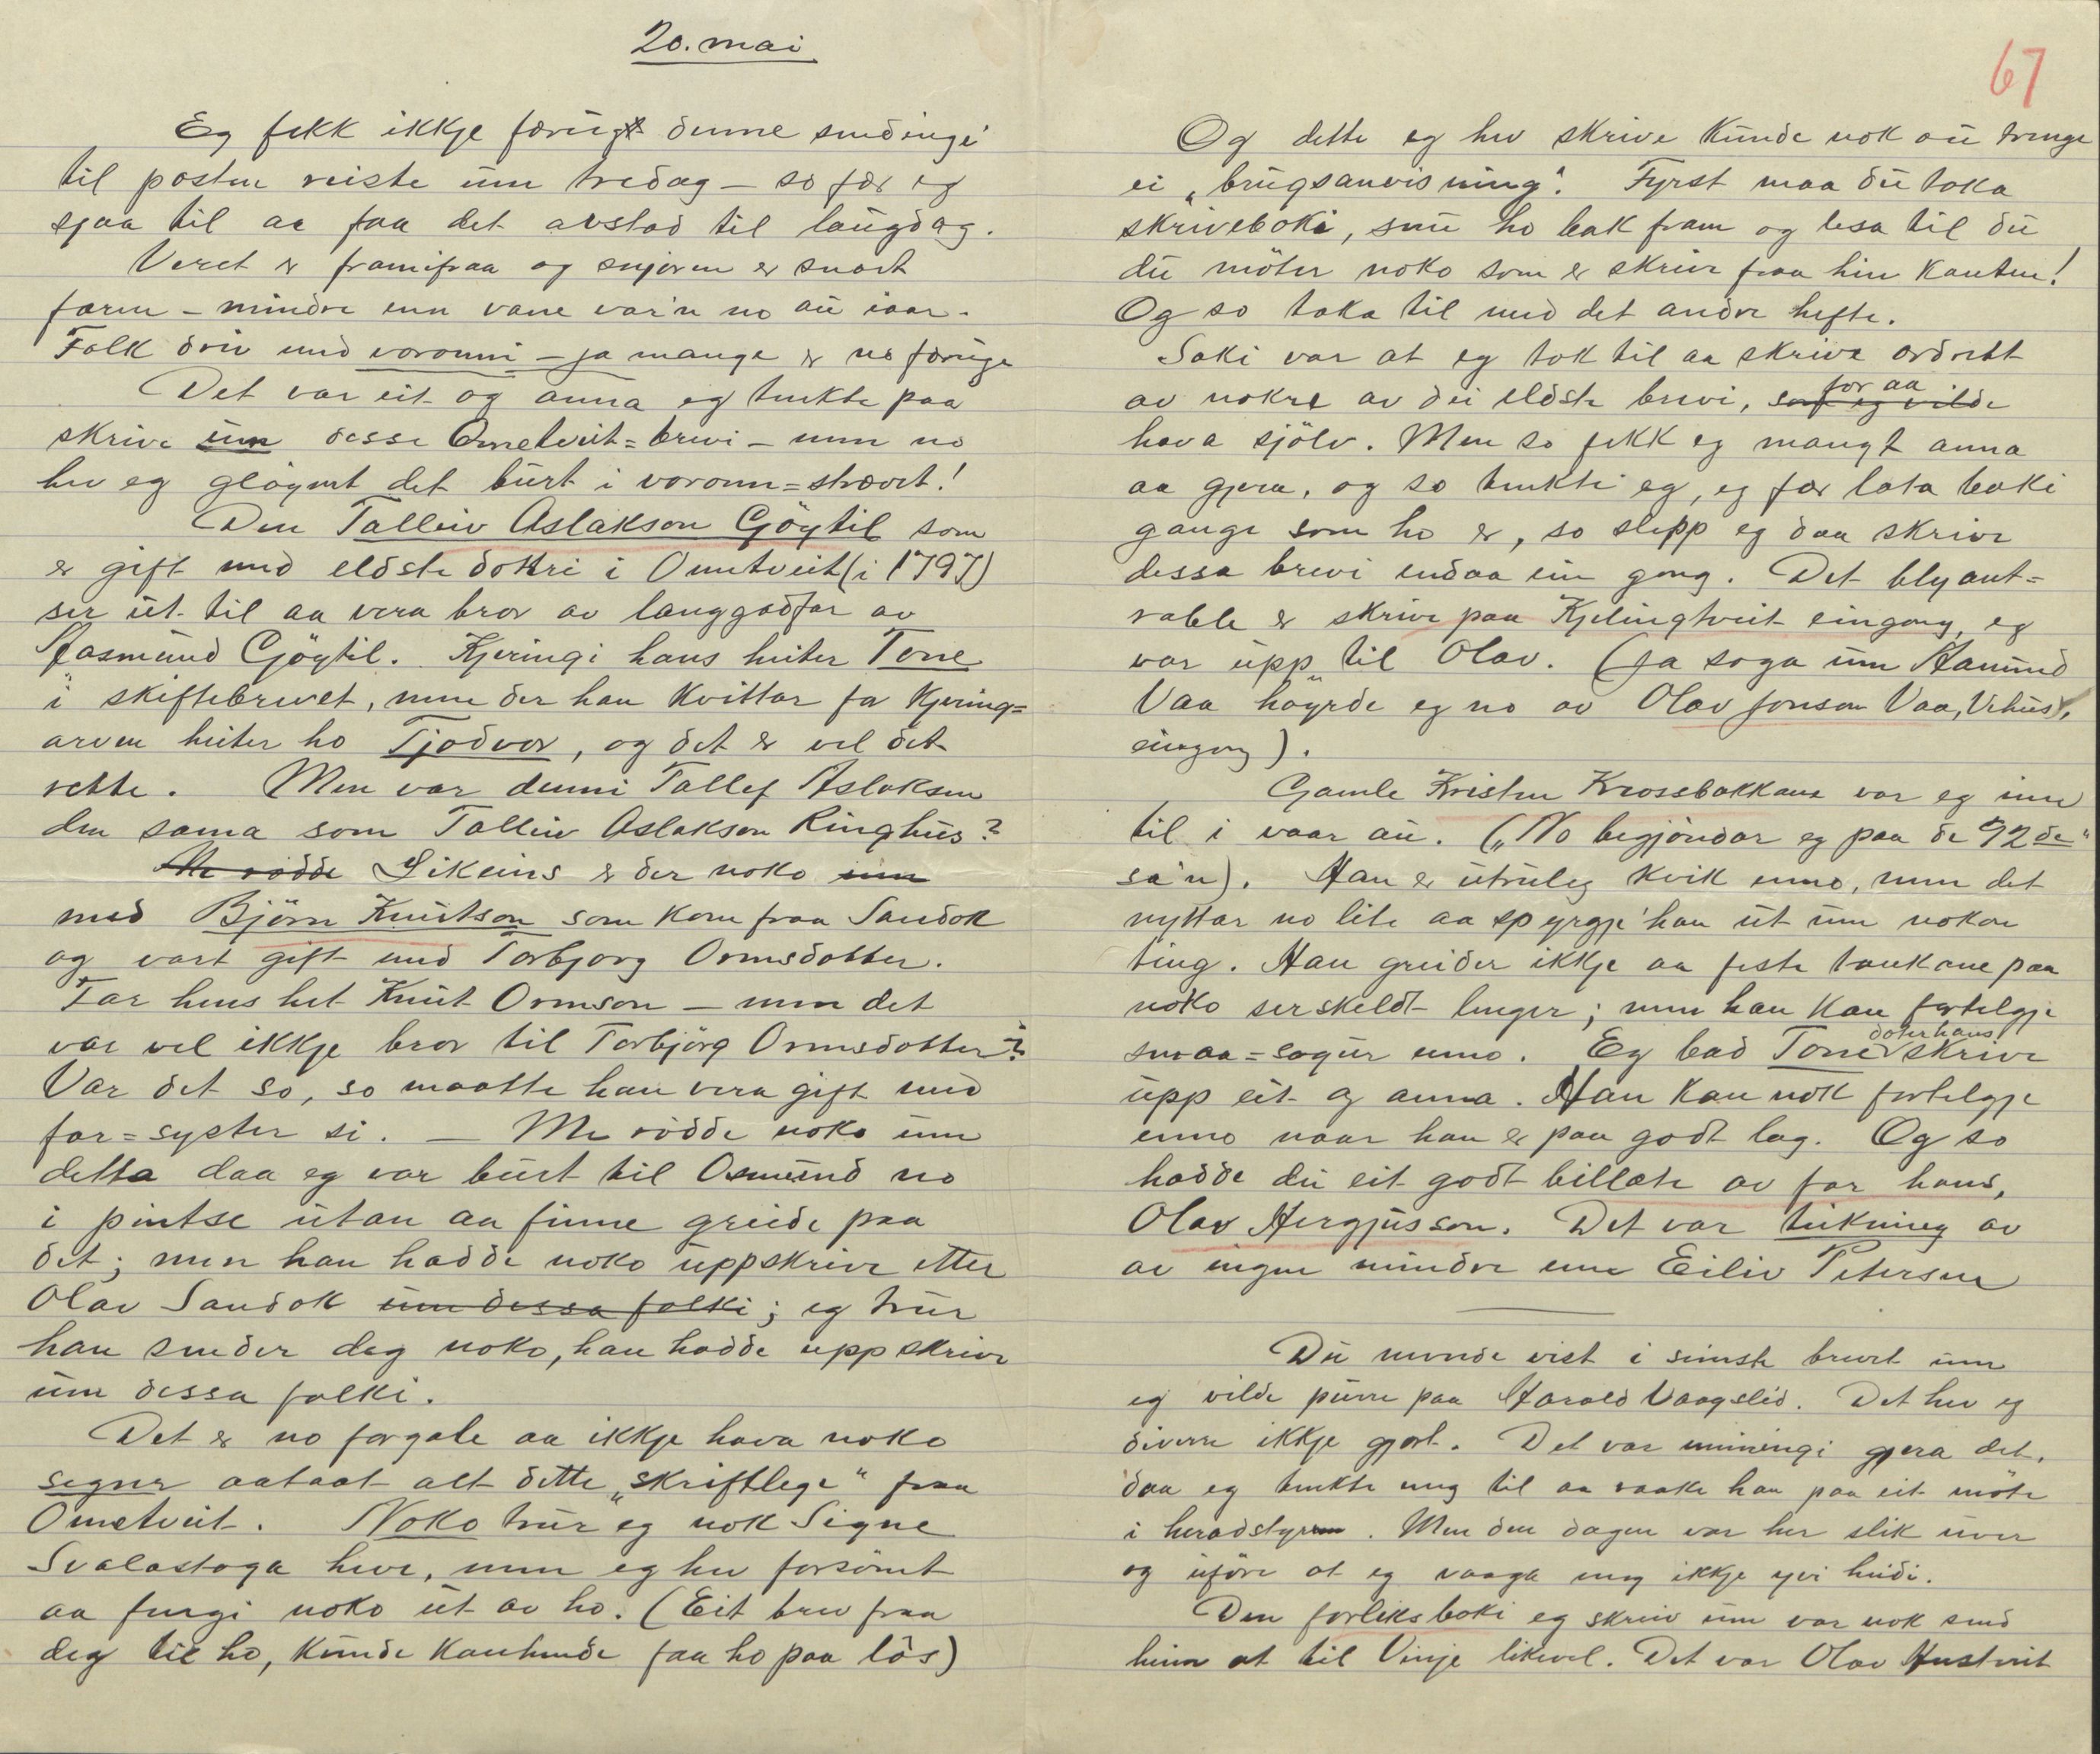 20. mai
Eg fekk ikkje færugt denne sendingi
til posten reiste um tredag - so fær eg
sjaa til aa faa det avstad til laugdag.
Veret er framifraa og snjoren er snart
faren - mindre enn vane var'n no au iaar.
Folk driv med voronni - ja mange er no færuge
Det var eit og anna eg tenkte paa
skrive um desse Ometveit=brevi - men no
hev eg gløymt det burt i voronn=strævet!
Den Talleiv Aslakson Gøytil som
er gift med eldste dotri i Ometveit (i 1797)
ser ut til aa vera bror av langgodfar av
Aasmund Gøytil. Kjeringi hans heiter Tone
i skiftebrevet, men der han kvittar fø kjering=
arven heiter ho Tjodvor, og det er vel det
rette. Men var denni Tallef Aslaksen
den sama som Talleiv Aslakson Ringhus?
Me rødde Likeins er der noko um
med Bjørn Knutson som kom fraa Sandok
og vart gift med Torbjorg Ormsdotter.
Far hens het Knut Ormson - men det
var vel ikkje bror til Torbjørg Ormsdotter?
Var det so, so maatte han vera gift med
far=syster si. - Me rødde noko um
detta daa eg var burt til Osmund no
i pintse utan aa finne greide paa
det; men han hadde noko uppskrive etter
Olav Sandok um dessa folki; eg trur
han sender deg noko, han hadde uppskrive
um dessa folki.
Det er no forgale aa ikkje hava noko
segner aataat alt dette „skriftlege" fraa
Ometveit. Noko trur eg nok Signe
Svalastoga heve, men eg hev forsømt
aa fengi noko ut av ho. (Eit brev fraa
deg til ho, kunde kanhende faa ho paa løs)
67
Og dette eg hev skrive kunde nok au trenge
ei „brugsanvisning". Fyrst maa du taka
skriveboki, snu ho bak fram og lesa til du
du møter noko som er skrive fraa hin kanten!
Og so taka til med det andre hefte.
Saki var at eg tok til aa skrive ordrett
for aa
av nokre av dei eldste brevi, som eg vilde
hava sjølv. Men so fekk eg mangt anna
aa gjera, og so tenkti eg, eg fær lata boki
gange som ho er, so slepp eg daa skrive
dessa brevi endaa ein gong. Det blyant=
rable er skrive paa Kjelingtveit eingong, eg
var upp til Olav. (Ja soga um Aamund
Vaa høyrde eg no av Olav Jonson Vaa, Vehus,
eingong).
Gamle Kristen Krossbakkane var eg inn
til i vaar au. („No begjøndar eg paa de 92de"
sa'n). Han er utruleg kvik enno, men det
nyttar no lite aa spyrgje han ut um nokon
ting. Han greider ikkje aa feste tankane paa
noko serskeldt lenger; men han kan fortelgje
doter hans
smaa=sogur enno. Eg bad Tone skrive
upp eit og anna. Han kan nok fortelgje
enno naar han er paa godt lag. Og so
hadde du eit godt billæte av far hans,
Olav Hergjusson. Det var teikning av
av ingen mindre enn Eiliv Petersen
Du nemnde vist i seinste brevet um
eg vilde purre paa Harald Vaagslid. Det hev eg
diverre ikkje gjort. Det var meiningi gjera det,
daa eg tenkte meg til aa raake han paa eit møte
i heradstyre. Men den dagen var her slik uver
og uføre at eg vaaga meg ikkje yvi heidi.
Den forliksboki eg skreiv um var nok send
heim at til Vinje likevel. Det var Olav Hustveit